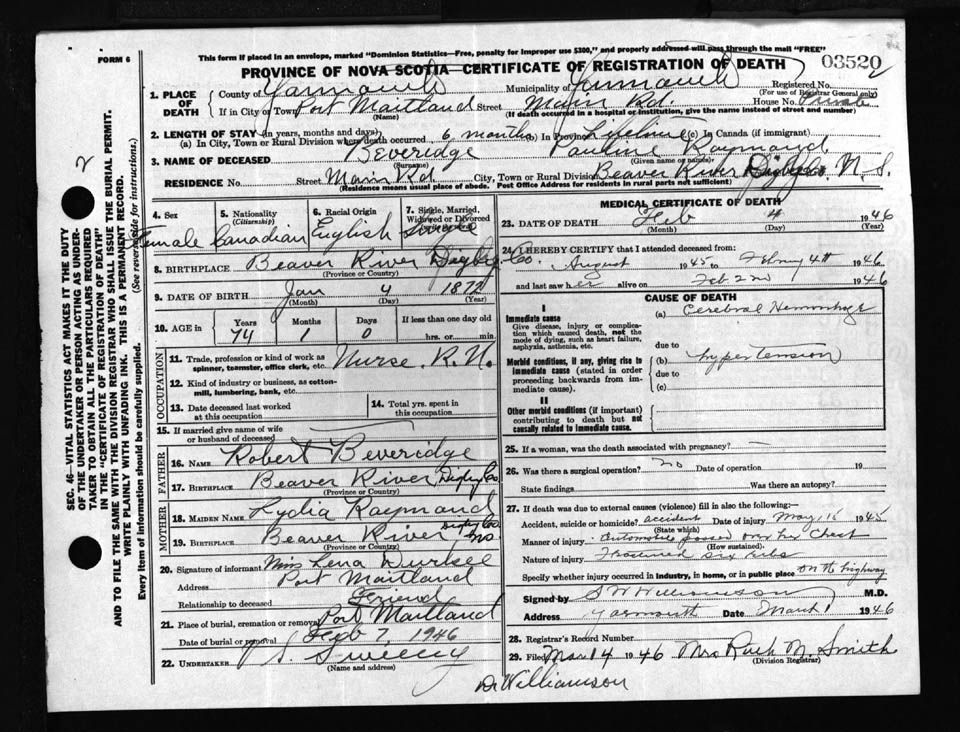 This form if placed in an envelope, marked "Dominion Statistics—Free, penalty for improper use $300," and properly addressed will pass through the mail "FREE"
FORM 6
2
PROVINCE OF NOVA SCOTIA—CERTIFICATE OF REGISTRATION OF DEATH
03520
2
1. PLACE OF DEATH
County of Yarmouth Municipality of Yarmouth Registered No.
(For use of Registrar General only)
If in City or Town Port Maitland Street Main Rd. House No. Private
(Name) (If death occurred in a hospital or institution, give the name instead of street and number)
2. LENGTH OF STAY (in years, months and days)
(a) In City, Town or Rural Division where death occurred 6 months (b) In Province Lifetime (c) In Canada (if immigrant)
3. NAME OF DECEASED Beveridge Pauline Raymond
(Surname) (Given name or names)
RESIDENCE No. Street Main Rd City, Town or Rural Division Beaver River Digby Co. N. S.
(Residence means usual place of abode. Post Office Address for residents in rural parts not sufficient)
4. Sex
Female
5. Nationality
(Citizenship)
Canadian
6. Racial Origin
English
7. Single, Married, Widowed or Divorced
Single
8. BIRTHPLACE Beaver River Digby Co.
(Province or Country)
9. DATE OF BIRTH Jan 4 1872
(Month) (Day) (Year)
10. AGE in
Years Months Days If less than one day old
74 1 0 hrs. or min.
OCCUPATION
11. Trade, profession or kind of work as spinner, teamster, office clerk, etc. Nurse. R.N.
12. Kind of industry or business, as cotton-mill, lumbering, bank, etc.
13. Date deceased last worked at this occupation
14. Total yrs. spent in this occupation
15. If married give name of wife or husband of deceased
FATHER
16. NAME Robert Beveridge
17. BIRTHPLACE Beaver River Digby Co.
(Province or Country)
MOTHER
18. MAIDEN NAME Lydia Raymond
19. BIRTHPLACE Beaver River Digby Co. N.S.
(Province or Country)
20. Signature of informant Miss Lena Durkee
Address Port Maitland
Relationship to deceased Friend
21. Place of burial, cremation or removal Port Maitland
Date of burial or removal Feb 7 1946
22. UNDERTAKER S. Sweeny
(Name and address)
MEDICAL CERTIFICATE OF DEATH
23. DATE OF DEATH Feb 4 1946
(Month) (Day) (Year)
24. I HEREBY CERTIFY that I attended deceased from
August 1945 to Febry 4th 1946
and last saw her alive on Feb 2nd 1946
CAUSE OF DEATH
I
Immediate cause
Give disease, injury or complication which caused death, not the mode of dying, such as heart failure, asphyxia, asthenia, etc.
(a) Cerebral Hemorrhage
due to
Morbid conditions, if any, giving rise to immediate cause (stated in order proceeding backwards from immediate cause).
(b) hypertension
due to
(c)
II
Other morbid conditions (if important) contributing to death but not causally related to immediate cause.
25. If a woman, was the death associated with pregnancy? —
26. Was there a surgical operation? no Date of operation 19
State findings Was there an autopsy?
27. If death was due to external causes (violence) fill in also the following:
Accident, suicide or homicide? accident Date of injury May 16 1945
(State which)
Manner of injury Automobile passed over her Chest
(How sustained)
Nature of injury Fractured six ribs
Specify whether injury occurred in industry, in home, or in public place on the highway
Signed by S W Williamson M.D.
Address Yarmouth Date March 1 1946
28. Registrar's Record Number
29. Filed Mar 14 1946 Mrs Ruth M. Smith
(Division Registrar)
Dr Williamson
SEC. 46—VITAL STATISTICS ACT MAKES IT THE DUTY
OF THE UNDERTAKER OR PERSON ACTING AS UNDER-
TAKER TO OBTAIN ALL THE PARTICULARS REQUIRED
IN THE "CERTIFICATE OF REGISTRATION OF DEATH"
AND TO FILE THE SAME WITH THE DIVISION REGISTRAR WHO SHALL ISSUE THE BURIAL PERMIT.
WRITE PLAINLY WITH UNFADING INK. THIS IS A PERMANENT RECORD.
Every item of information should be carefully supplied. (See reverse side for instructions.)